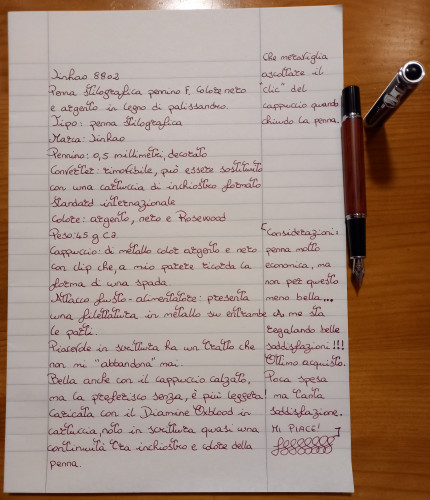 Jinhao 8802
Penna stilografica pennino F. Colore nero
e argento in legno di palissandro.
Tipo: penna stilografica
Marca: Jinhao
Pennino: 0,5 millimetri, decorato
Converter: rimovibile, può essere sostituito
con una cartuccia di inchiostro formato
standard internazionale
Colore: argento, nero e Rosewood
Peso: 45 g ca.
Cappuccio: di metallo color argento e nero
con clip che, a mio parere ricorda la
forma di una spada.
Attacco fusto-alimentatore: presenta
una filettatura in metallo su entrambe
le parti.
Piacevole in scrittura ha un tratto che
non mi "abbandona" mai.
Bella anche con il cappuccio calzato,
ma la preferisco senza, è più leggera!
Caricata con il Diamine Oxblood in
cartuccia, noto in scrittura quasi una
continuità tra inchiostro e colore della
penna.
Che meraviglia
ascoltare il
"clic" del
cappuccio quando
chiudo la penna.
[Considerazioni:
penna molto
economica, ma
non per questo
meno bella...
mi sta
regalando belle
soddisfazioni!!!
Ottimo acquisto.
Poca spesa
ma tanta
soddisfazione.
MI PIACE!]